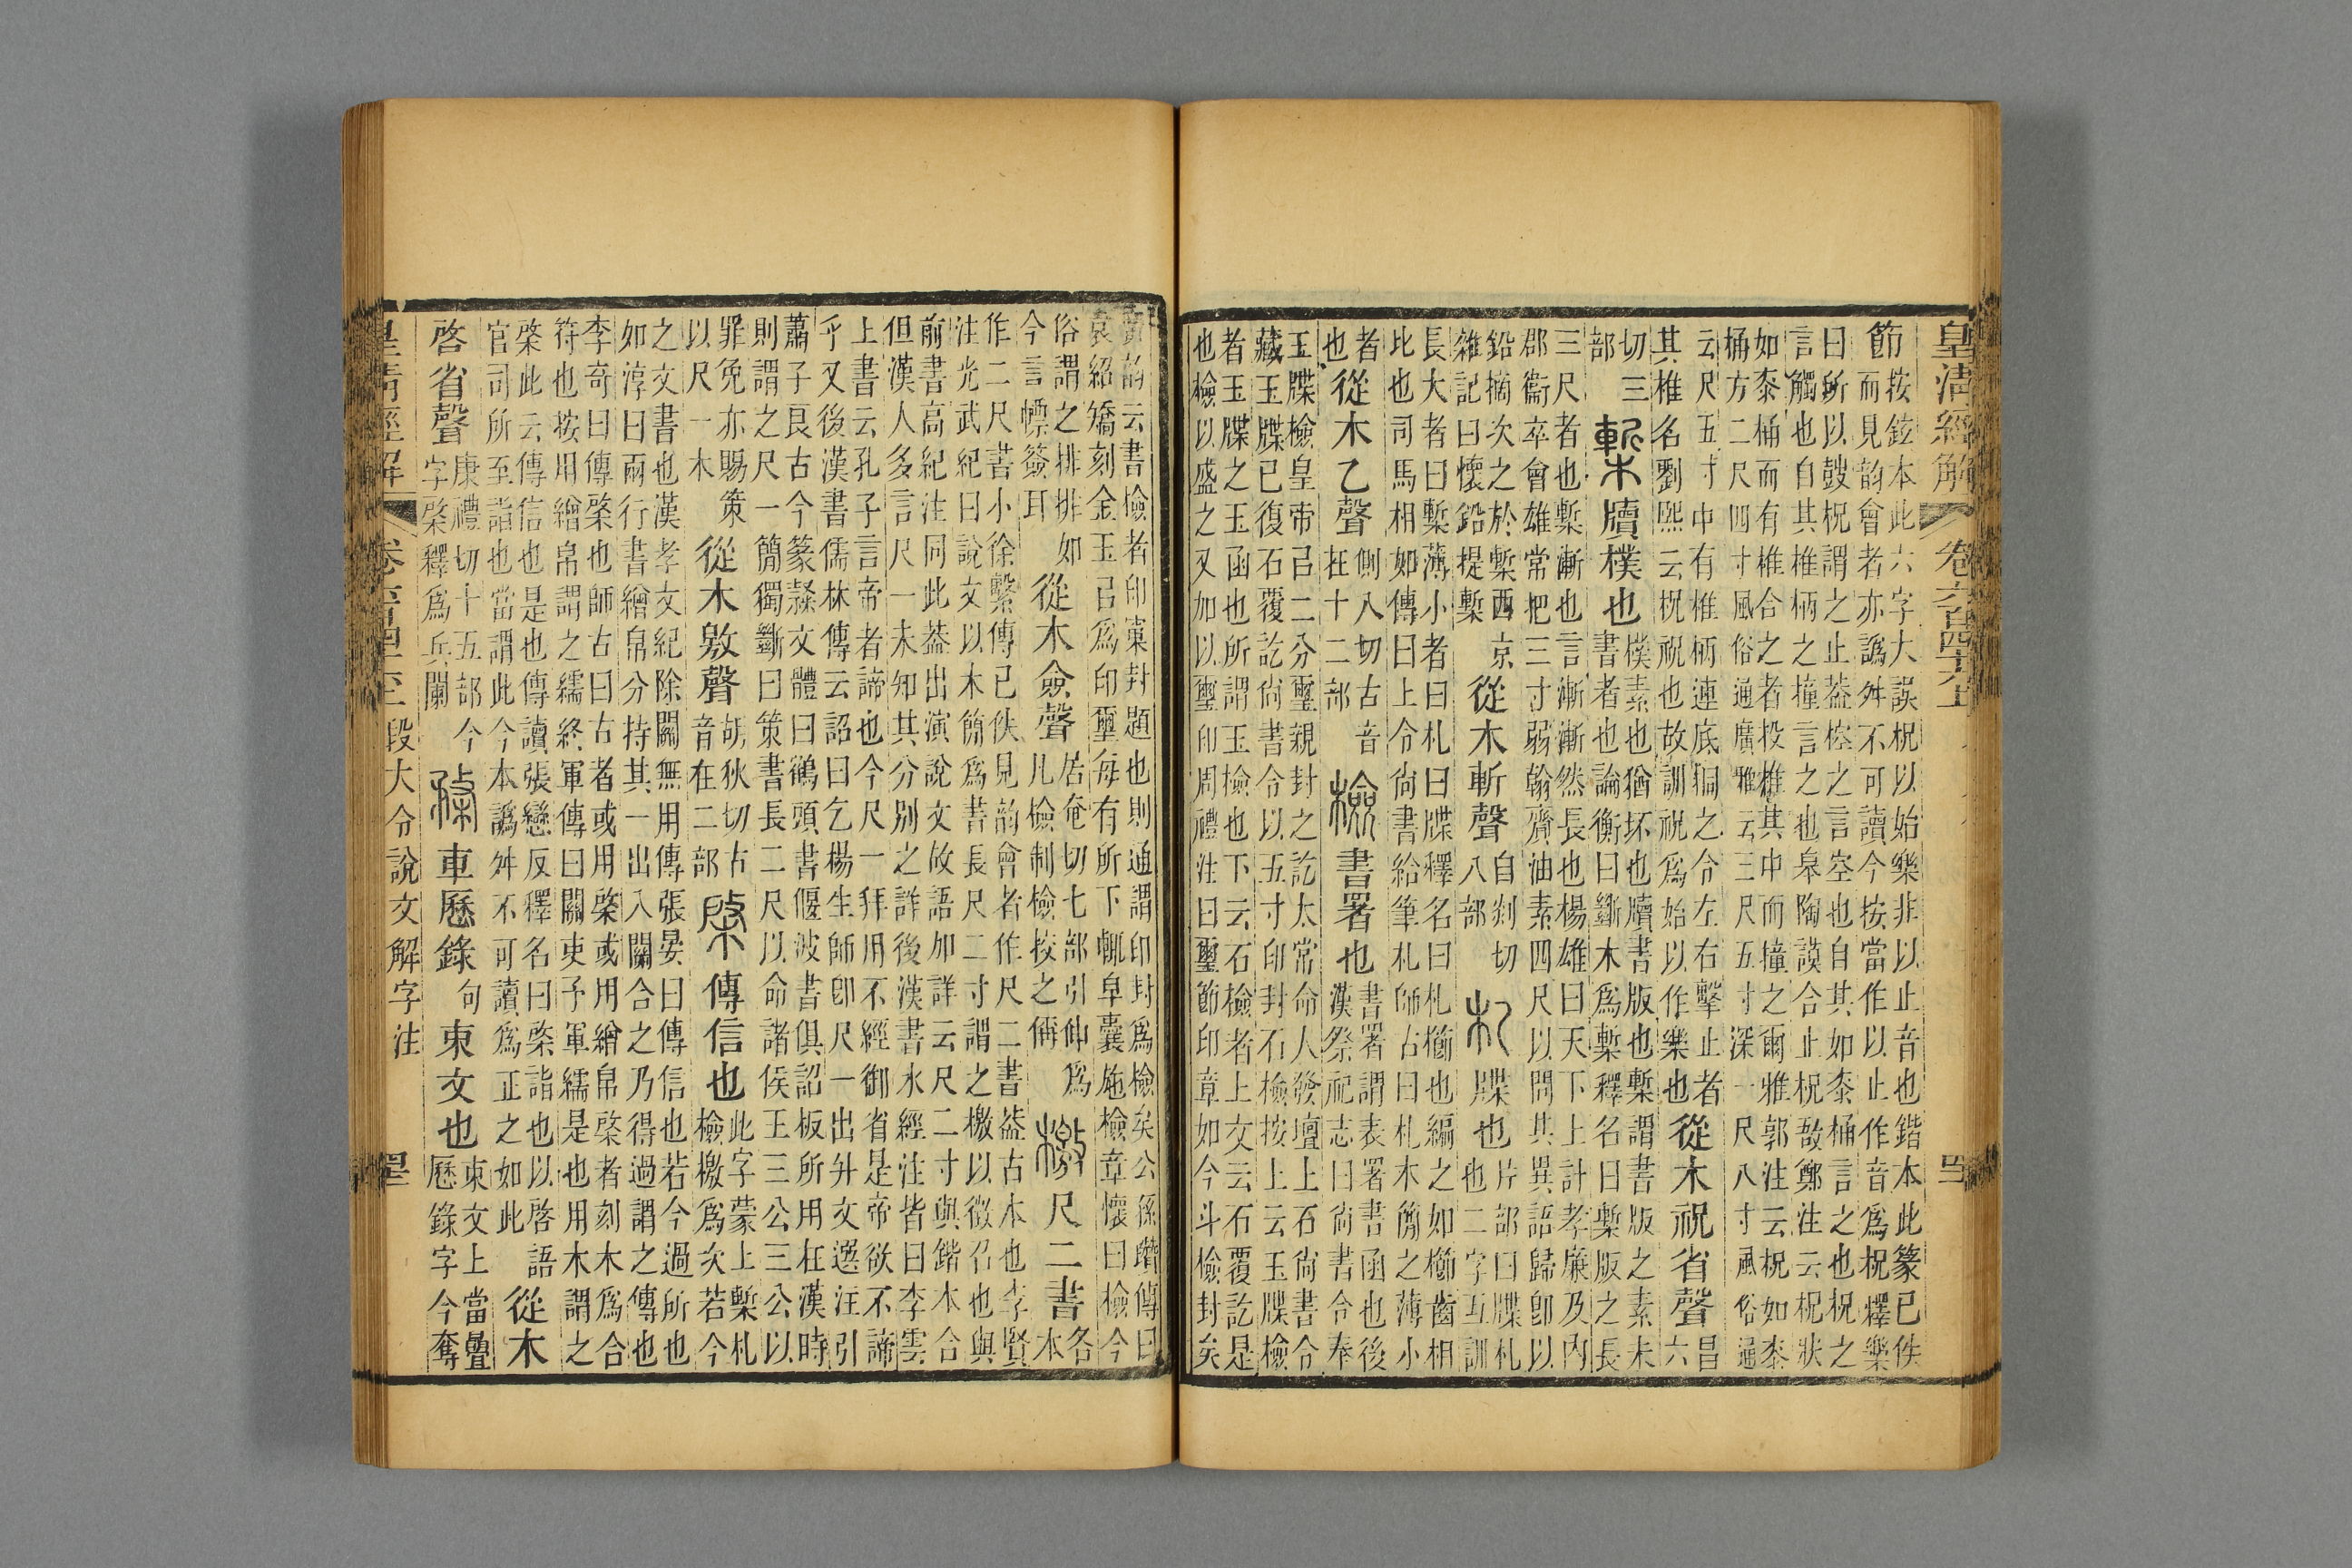 皇清經解 卷六百四六上 四
節按鉉本此六字大誤柷以始樂非以止音也鍇本此篆已佚
而見韵會者亦譌舛不可讀今按當作以止作音爲柷釋樂
曰所以鼓柷謂之止葢椌之言空也自其如桼桶言之也柷之
言觸也自其椎柄之撞言之也皋陶謨合止柷敔鄭注云柷狀
如桼桶而有椎合之者投椎其中而撞之爾雅郭注云柷如桼
桶方二尺四寸風俗通廣雅云三尺五寸深一尺八寸風俗通
云尺五寸中有椎柄連底挏之令左右擊止者
其椎名劉熙云柷祝也故訓祝爲始以作樂也從木祝省聲昌六
切三部槧牘樸也樸素也猶坏也牘書版也槧謂書版之素未
書者也論衡曰斷木爲槧釋名曰槧版之長
三尺者也槧漸也言漸漸然長也楊雄曰天下上計孝廉及内
郡衞卒會雄常把三寸弱翰齎油素四尺以問其異語歸卽以
鉛摘次之於槧西京
雜記曰懷鉛提槧從木斬聲自剡切八部札牒也片部曰牒札
也二字互訓
長大者曰槧薄小者曰札曰牒釋名曰札櫛也編之如櫛齒相
比也司馬相如傳曰上令尚書給筆札師古曰札木簡之薄小
者也從木乙聲側八切古音在十二部檢書署也書署謂表署書函也後
漢祭祀志曰尚書令奉
玉牒檢皇帝㠯二分璽親封之訖太常命人發壇上石尚書令
藏玉牒已復石覆訖尚書令以五寸印封石檢按上云玉牒檢
者玉牒之玉函也所謂玉檢也下云石檢者上文云石覆訖是
也檢以盛之又加以璽印周禮注曰璽節印章如今斗檢封矣
廣韵云書檢者印窠封題也則通謂印封爲檢矣公孫瓚傳曰
袁紹矯刻金玉㠯爲印璽每有所下輒皁囊施檢章懷曰檢今
俗謂之排排如
今言幖簽耳從木僉聲居奄切七部引伸爲凡檢制檢挍之偁檄尺二書各本
作二尺書小徐繫傳已佚見韵會者作尺二書葢古本也李賢
注光武紀曰說文以木簡爲書長尺二寸謂之檄以徵召也與
前書高紀注同此葢出演說文故語加詳云尺二寸與鍇本合
但漢人多言尺一未知其分別之詳後漢書水經注皆曰李雲
上書云孔子言帝者諦也今尺一拜用不經御省是帝欲不諦
乎又後漢書儒林傳云詔曰乞楊生師卽尺一出升文選注引
蕭子良古今篆隸文體曰鶴頭書偃波書俱詔板所用在漢時
則謂之尺一簡獨斷曰策書長二尺以命諸侯王三公三公以
罪免亦賜策
以尺一木從木敫聲胡狄切古音在二部棨傳信也此字蒙上槧札
檢檄爲次若今
之文書也漢孝文紀除關無用傳張晏曰傳信也若今過所也
如淳曰兩行書繒帛分持其一出入關合之乃得過謂之傳也
李奇曰傳棨也師古曰古者或用棨或用繒帛棨者刻木爲合
符也按用繒帛謂之繻終軍傳曰關吏予軍繻是也用木謂之
棨此云傳信也是也傳讀張戀反釋名曰棨詣也以啓語
官司所至詣也當謂此今本譌舛不可讀爲正之如此從木
啓省聲康禮切十五部今字棨釋爲兵闌楘車歷錄句束文也束文上當曡
歷錄字今奪
皇清經解 段大令說文解字注